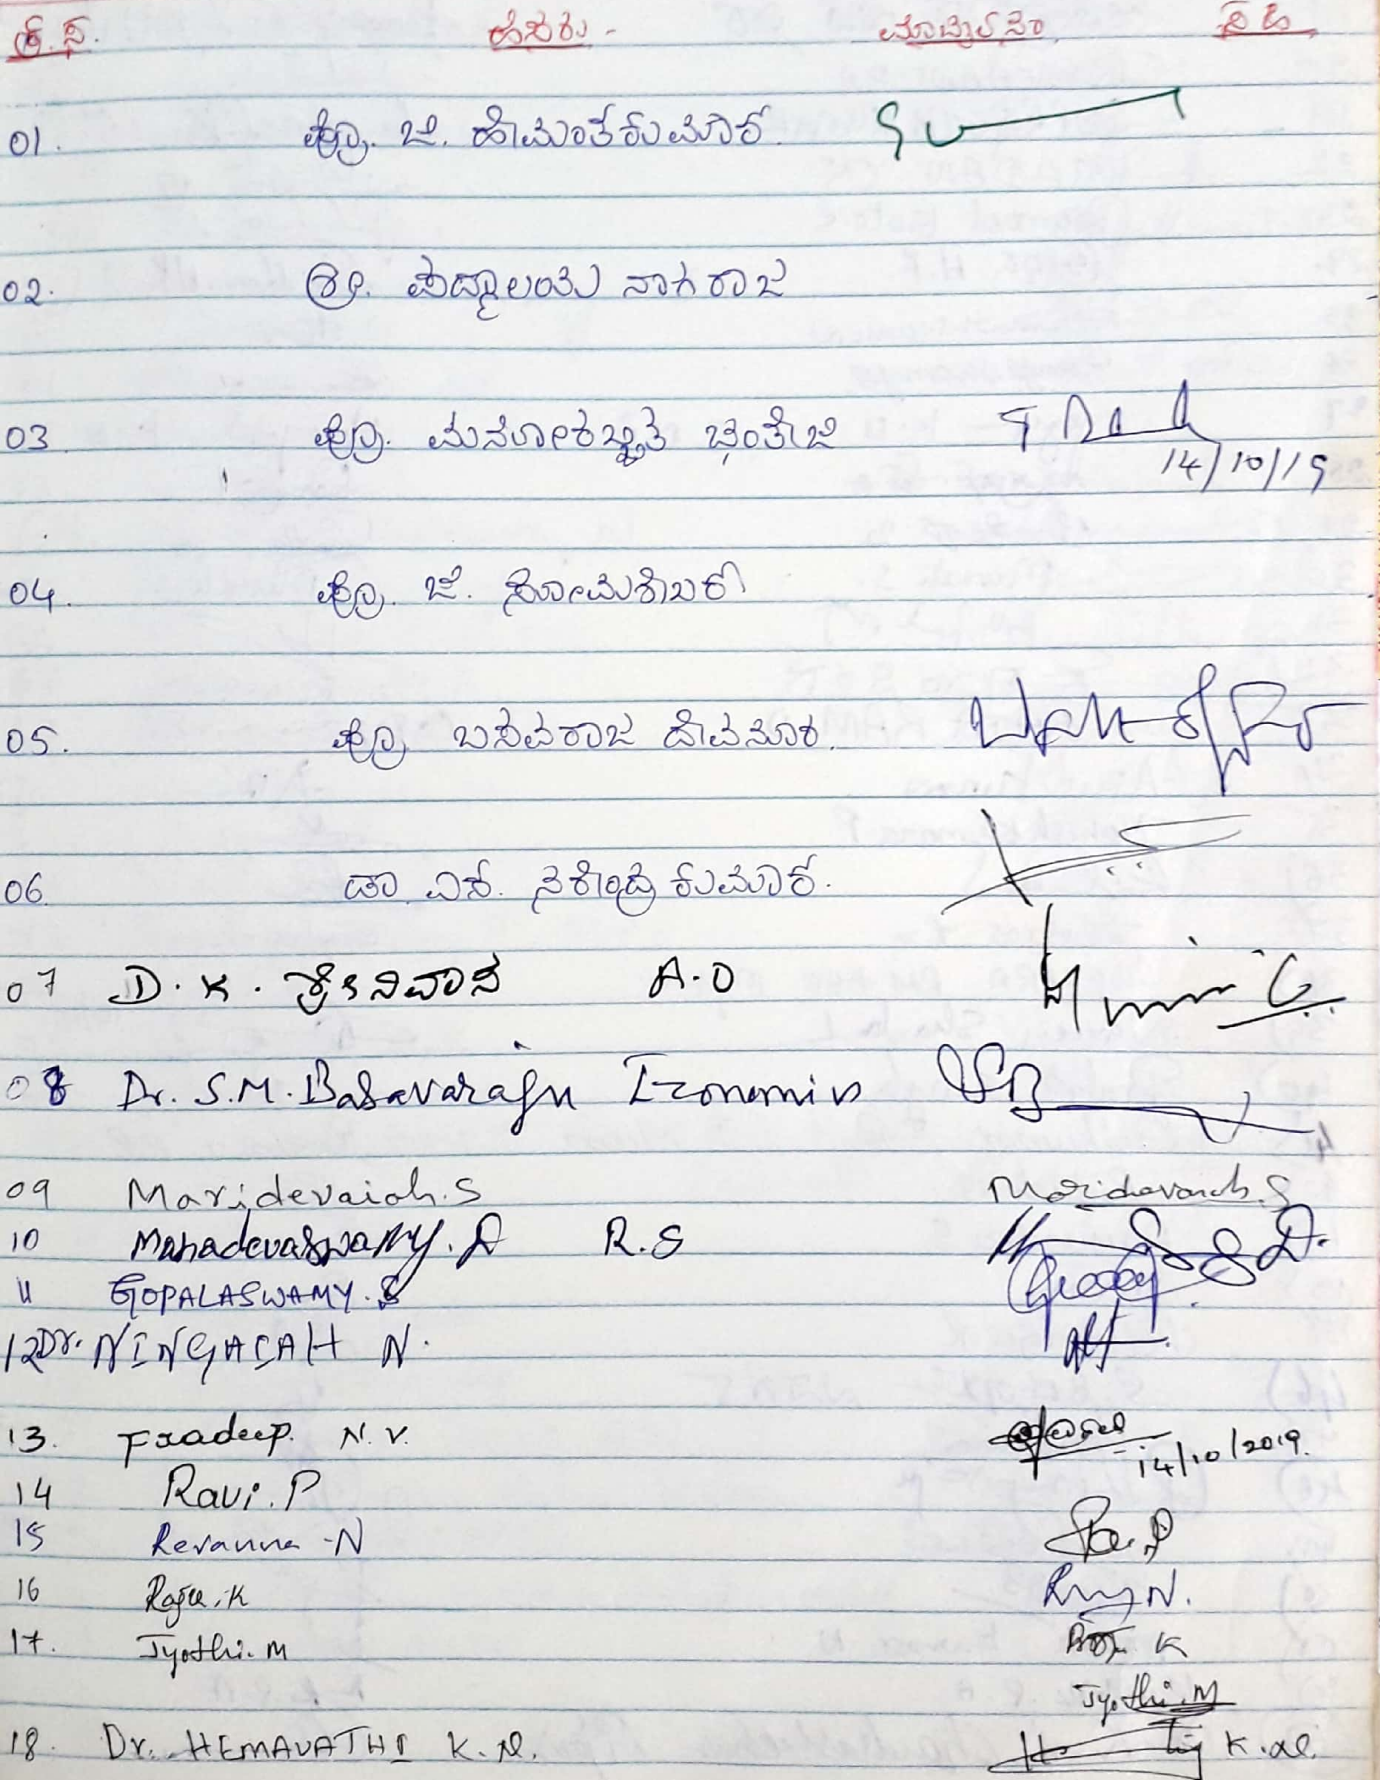 ಕ್ರ.ಸ. ಹೆಸರು - ಸಹಿ
01. ಪ್ರೊ. ಜೆ. ಹೇಮಂತಕುಮಾರ.
02. ಶ್ರೀ. ಪದ್ಮಾಲಯ ನಾಗರಾಜ
03 ಪ್ರೊ. ಮನೋರಖ್ಖಿತ ಭಂತೇಜಿ
14/10/19
04. ಪ್ರೊ. ಜೆ. ಸೋಮಶೇಖರ
05. ಪ್ರೊ ಬಸವರಾಜ ದೇವನೂರ.
06 ಡಾ ಎಸ್. ನರೇಂದ್ರಕುಮಾರ.
07 D. K. ಶ್ರೀನಿವಾಸ A.O
08 Dr. S.M. Basavaraju Economics
09 Maridevaiah.S Maridevaiah.S
10 Mahadevaswamy. D R.S
11 GOPALASWAMY. S
12 Dr. NINGAIAH N.
13. Pradeep. N.V. 14/10/2019.
14 Ravi. P
15 Revanna -N
16 Raju. K
17. Jyothi. M
Jyothi. M
18. Dr. HEMAVATHI K.N. K.N.